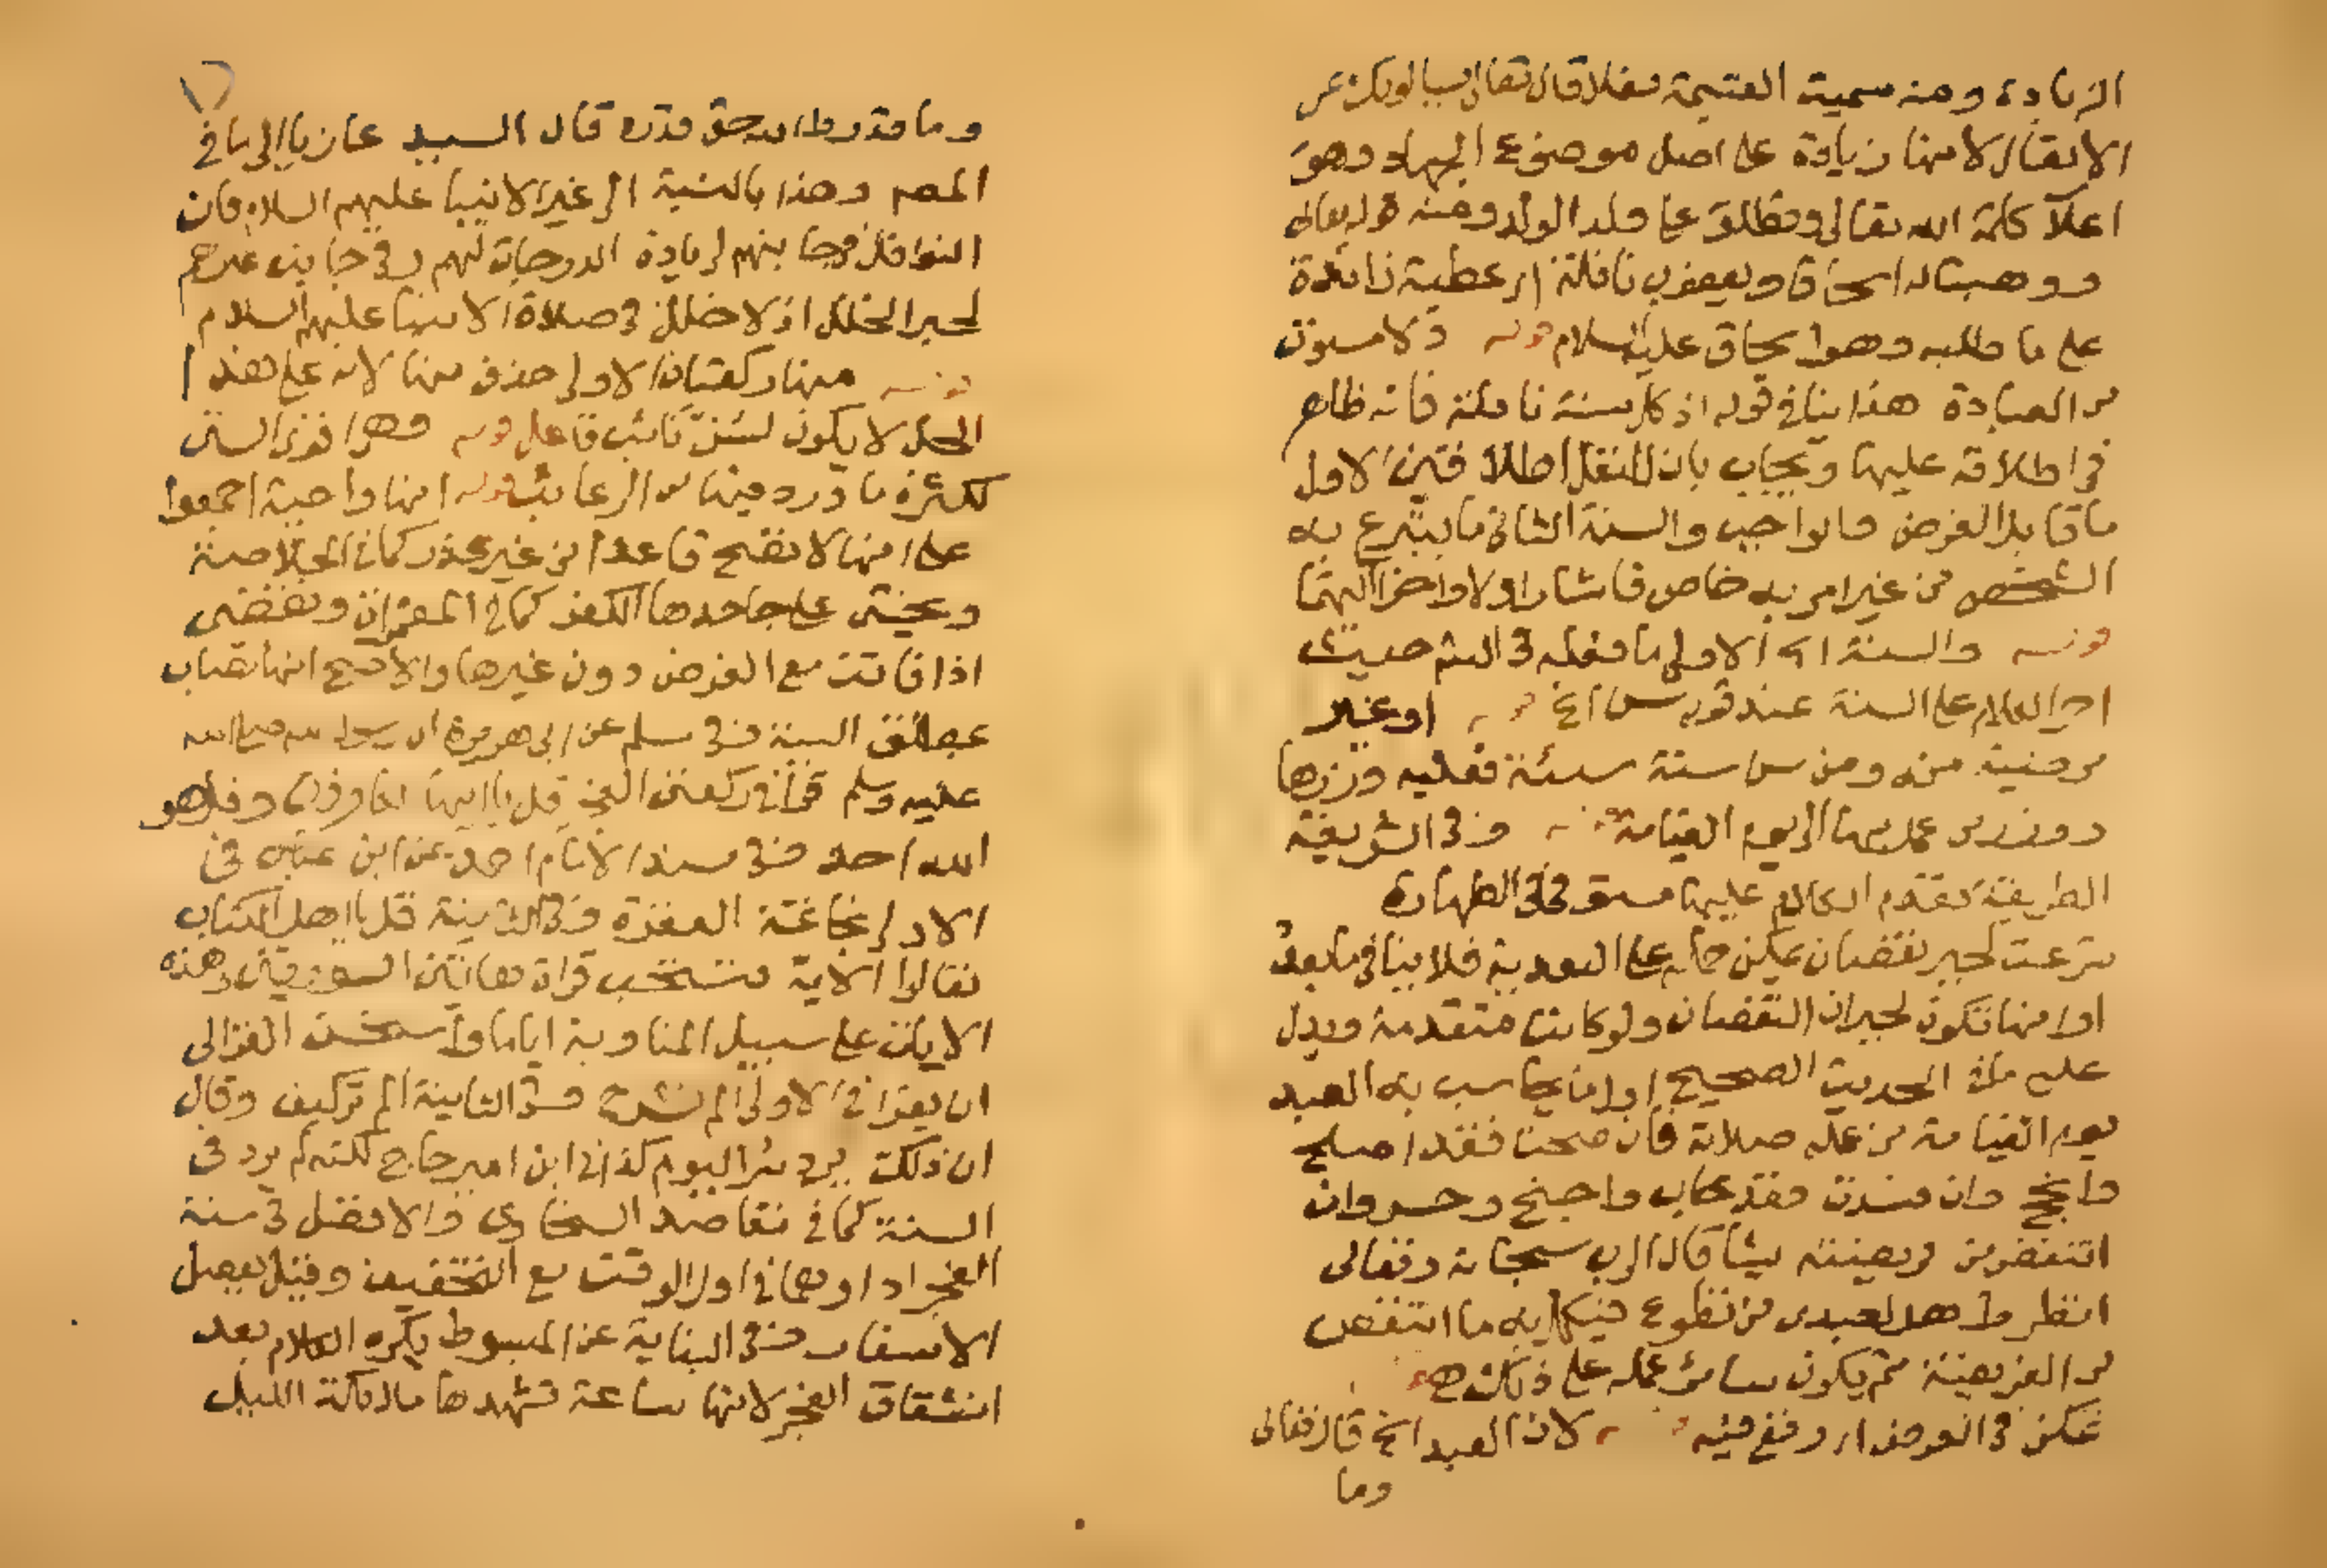 الزيادة ومنه سميت الغنيمة نفلا قال تعالى يسالونك عن
الانفال لانها زيادة على اصل موضوع الجهاد وهو
اعلا كلمة الله تعالى وتطلق على ولد الولد ومنه قوله تعالى
ووهبنا له اسحاق ويعقوب نافلة اى عطية زائدة
على ما طلبه وهو اسحاق عليه السلام قوله ولا مسنون
من العبادة هذا ينافى قوله اذ كل سنة نافلة فانه ظاهر
فى اطلاقه عليها ويجاب بان للنفل اطلاقين الاول
ما قابل الفرض والواجب والسنة الثانى ما يتبرع به
الشخص من غير امر به خاص فاشار اولا واخرا اليهما
قوله والسنة الاولى ما فعله فى الشرح حيث
الكلام على السنة عند قوله سن الخ قوله او غير
مرضية منه ومن سن سنة سيئة فعليه وزرها
ووزر من عمل بها الى يوم القيامة وفى الشريعة
الطريقة تقدم الكلام عليها مستوفى فى الطهارة
شرعت لجبر نقصان يمكن حمله على البعدية فلا ينافى ما بعد
او انها تكون لجبران النقصان ولو كانت متقدمة ويدل
عليه ما فى الحديث الصحيح اول ما يحاسب به العبد
يوم القيامة من عمله صلاته فان صحت فقد افلح
وانجح وان فسدت فقد خاب وخسر وان
انتقص من فريضته شيئا قال الرب سبحانه وتعالى
انظروا هل لعبدى من تطوع فيكمل به ما انتقص
من الفريضة ثم يكون سائر عمله على ذلك
تمكن فى الفرض اى وقع فيه لان العبد الخ قال تعالى
وما
وما قدروا الله حق قدره قال السيد
المصر وهذا بالنسبة الى غير الانبياء عليهم السلام فان
النوافل فى جانبهم لزيادة الدرجات لهم وفى جانب غيرهم
لجبر الخلل اذ لا خلل فى صلاة الانبياء عليهم السلام
قوله منها ركعتان الاولى حذف منها لانه على هذا
الحل لا يكون لسن نائب فاعل قوله وهى اقوى السنن
لكثرة ما ورد فيها من الرغائب قوله انها واجبة اجمعوا
على انها لا تصح قاعدا من غير عذر كما فى الخلاصة
ويخشى على جاحدها الكفر كما فى المضمرات وتقضى
اذا فاتت مع الفرض دون غيرها والاصح انها تصاب
بمطلق النية وفى مسلم عن ابى هريرة ان رسول الله صلى الله
عليه وسلم قرأ فى ركعتى الفجر قل يا ايها الكافرون وقل هو
الله احد وفى مسند الامام احمد عن ابن عباس فى
الاولى بخاتمة البقرة وفى الثانية قل يا اهل الكتاب
تعالوا الاية فتستحب قراة هاتين السورتين وهذه
الايات على سبيل المناوبة اياما واستحسن الغزالى
ان يقرا فى الاولى الم نشرح وفى الثانية الم تر كيف وقال
ان ذلك يرد شر اليوم كذا فى ابن امير حاج لكنه لم يرد فى
السنة كما فى مقاصد السخاوى والافضل فى سنة
الفجر اداوهما فى اول الوقت مع التخفيف وقيل بعيد
الاسفار وفى البناية عن المبسوط يكره الكلام بعد
انشقاق الفجر لانها ساعة تشهدها ملائكة الليل